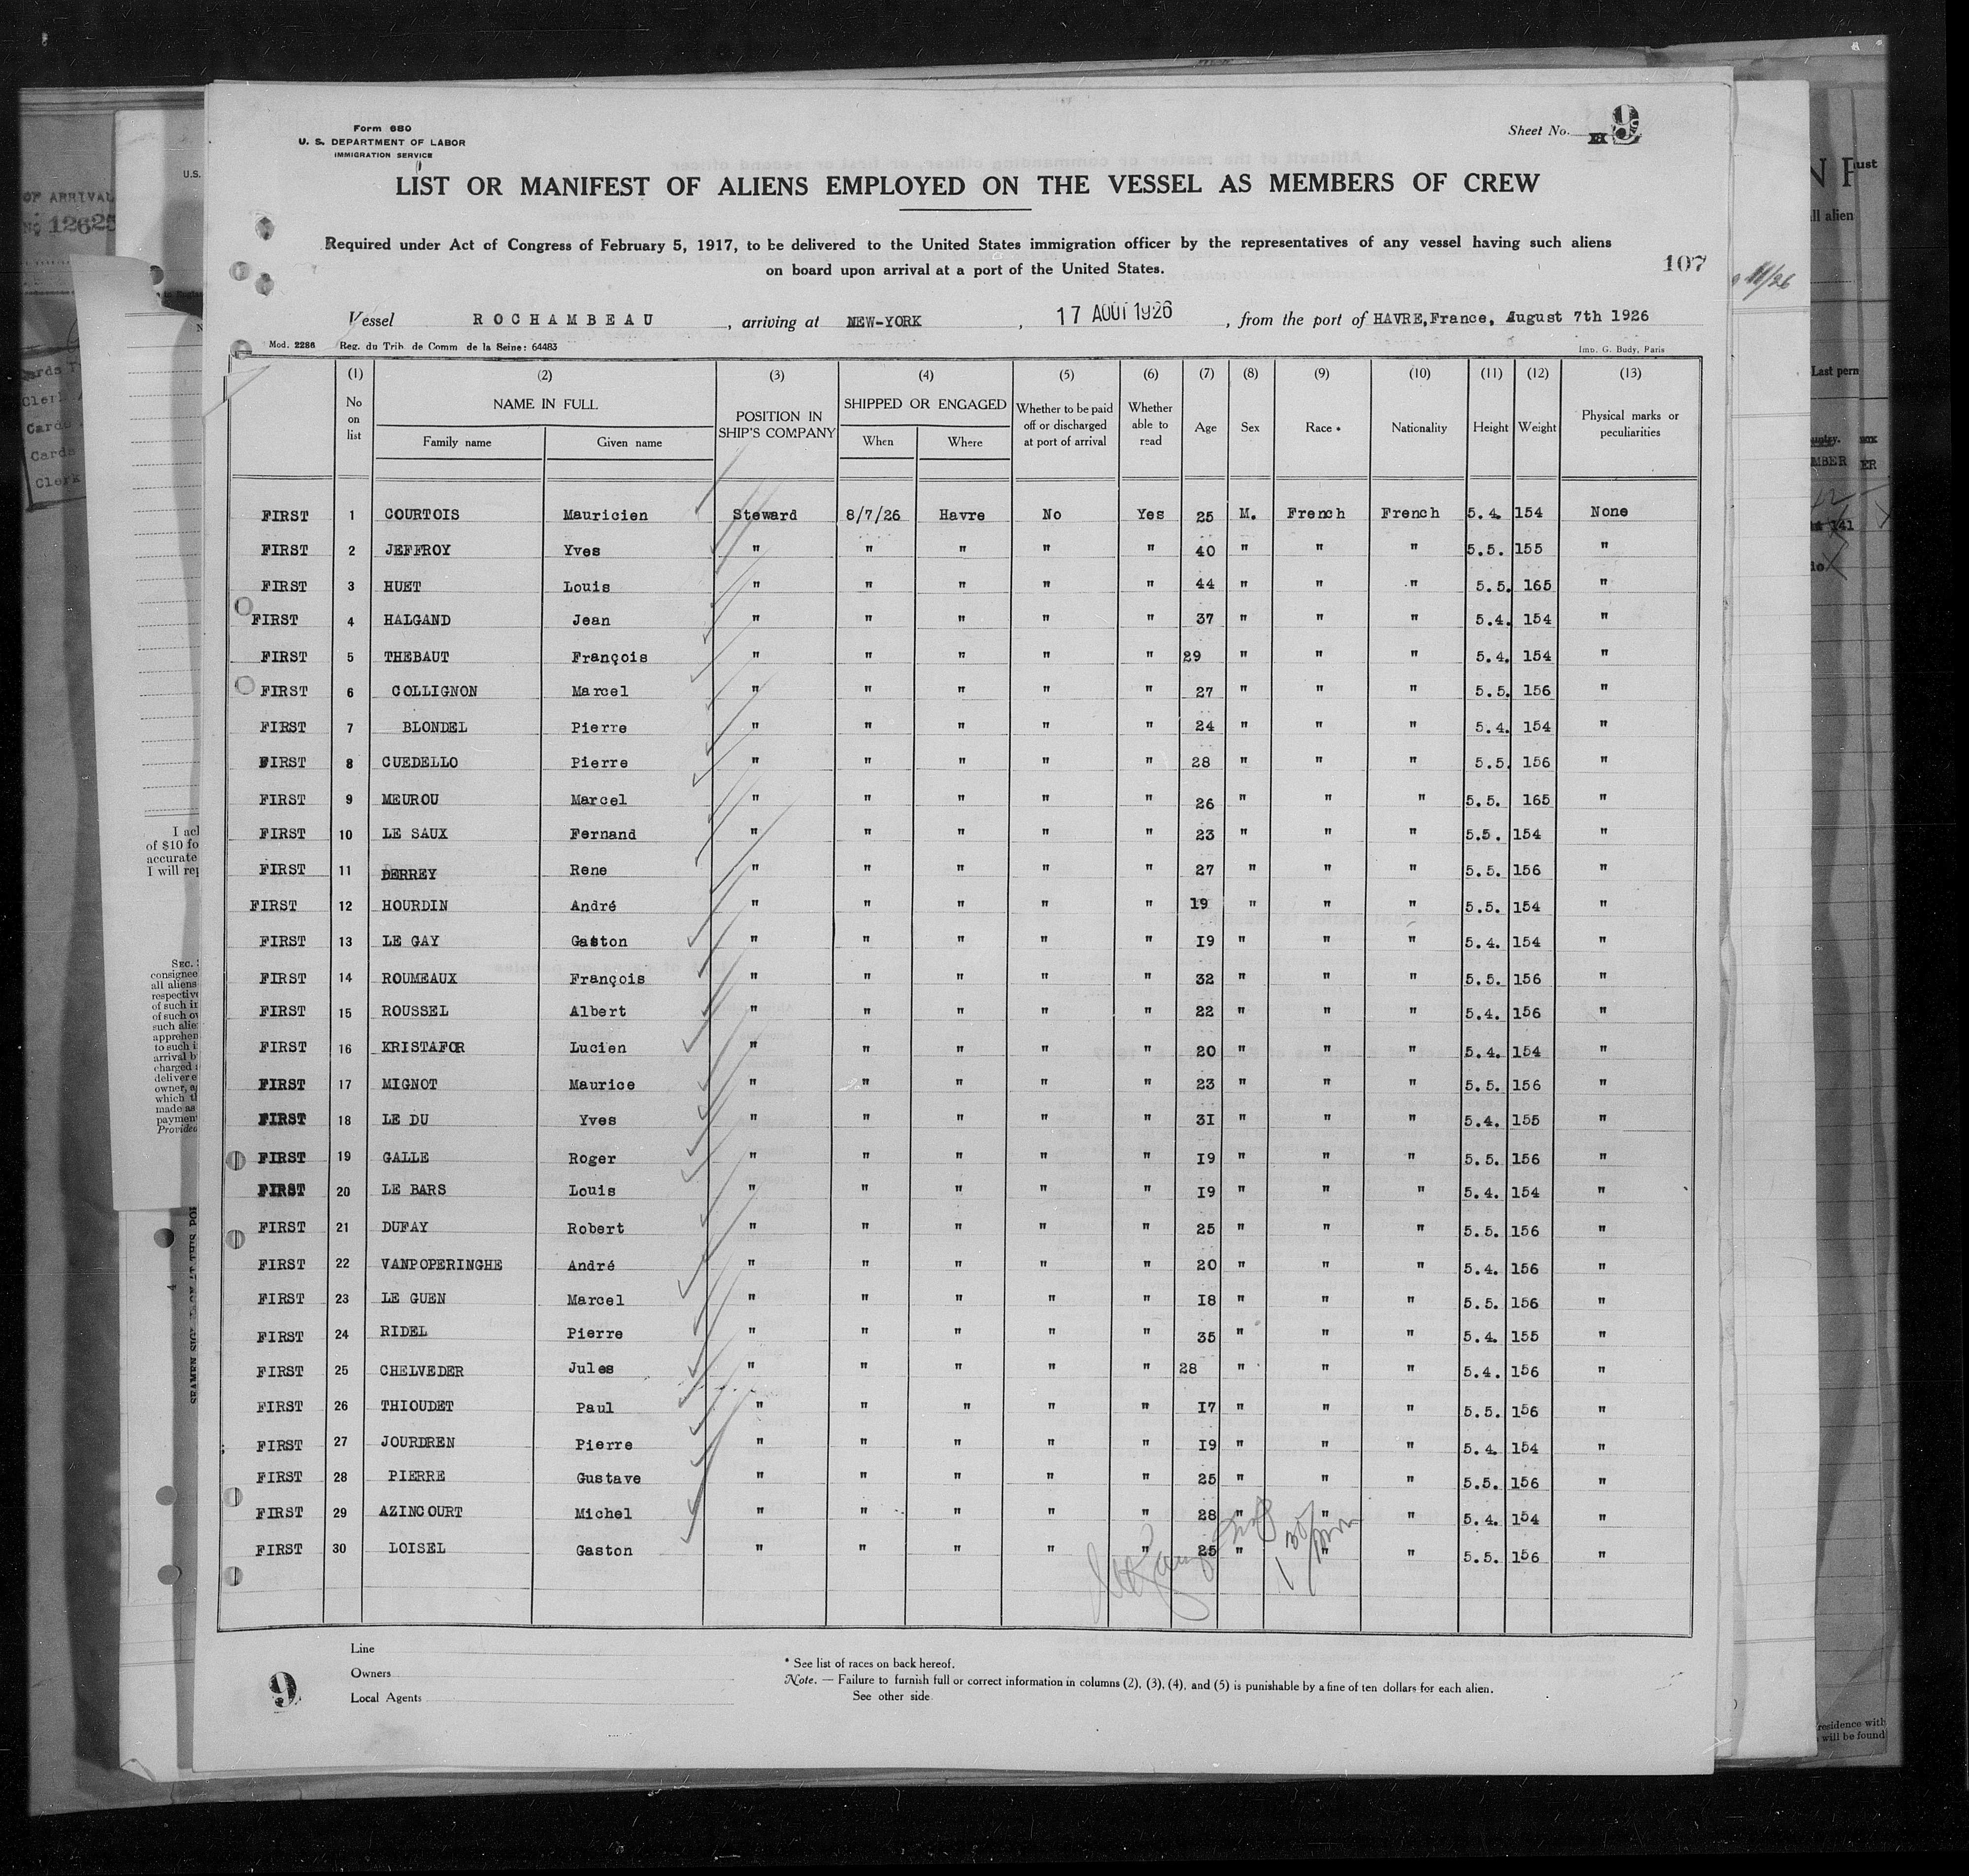 Form 680
U. S. DEPARTMENT OF LABOR
IMMIGRATION SERVICE
Sheet No. 9
LIST OR MANIFEST OF ALIENS EMPLOYED ON THE VESSEL AS MEMBERS OF CREW
Required under Act of Congress of February 5, 1917, to be delivered to the United States immigration officer by the representatives of any vessel having such aliens
on board upon arrival at a port of the United States.
107
Vessel ROCHAMBEAU, arriving at NEW-YORK, 17 AOUT 1926, from the port of HAVRE, France, August 7th 1926
Mod. 2286 Reg. du Trib. de Comm. de la Seine: 64483 Imp. G. Budy, Paris
(1) (2) (3) (4) (5) (6) (7) (8) (9) (10) (11) (12) (13)
No on list NAME IN FULL Family name Given name POSITION IN SHIP'S COMPANY SHIPPED OR ENGAGED When Where Whether to be paid off or discharged at port of arrival Whether able to read Age Sex Race * Nationality Height Weight Physical marks or peculiarities
FIRST 1 COURTOIS Mauricien Steward 8/7/26 Havre No Yes 25 M. French French 5.4. 154 None
FIRST 2 JEFFROY Yves " " " " " 40 " " " 5.5. 155 "
FIRST 3 HUET Louis " " " " " 44 " " " 5.5. 165 "
FIRST 4 HALGAND Jean " " " " " 37 " " " 5.4. 154 "
FIRST 5 THEBAUT François " " " " " 29 " " " 5.4. 154 "
FIRST 6 COLLIGNON Marcel " " " " " 27 " " " 5.5. 156 "
FIRST 7 BLONDEL Pierre " " " " " 24 " " " 5.4. 154 "
FIRST 8 CUEDELLO Pierre " " " " " 28 " " " 5.5. 156 "
FIRST 9 MEUROU Marcel " " " " " 26 " " " 5.5. 165 "
FIRST 10 LE SAUX Fernand " " " " " 23 " " " 5.5. 154 "
FIRST 11 DERREY Rene " " " " " 27 " " " 5.5. 156 "
FIRST 12 HOURDIN André " " " " " 19 " " " 5.5. 154 "
FIRST 13 LE GAY Gaston " " " " " 19 " " " 5.4. 154 "
FIRST 14 ROUMEAUX François " " " " " 32 " " " 5.5. 156 "
FIRST 15 ROUSSEL Albert " " " " " 22 " " " 5.4. 156 "
FIRST 16 KRISTAFOR Lucien " " " " " 20 " " " 5.4. 154 "
FIRST 17 MIGNOT Maurice " " " " " 23 " " " 5.5. 156 "
FIRST 18 LE DU Yves " " " " " 31 " " " 5.4. 155 "
FIRST 19 GALLE Roger " " " " " 19 " " " 5.5. 156 "
FIRST 20 LE BARS Louis " " " " " 19 " " " 5.4. 154 "
FIRST 21 DUFAY Robert " " " " " 25 " " " 5.5. 156 "
FIRST 22 VANPOPERINGHE André " " " " " 20 " " " 5.4. 156 "
FIRST 23 LE GUEN Marcel " " " " " 18 " " " 5.5. 156 "
FIRST 24 RIDEL Pierre " " " " " 35 " " " 5.4. 155 "
FIRST 25 CHELVEDER Jules " " " " " 28 " " " 5.4. 156 "
FIRST 26 THIOUDET Paul " " " " " 17 " " " 5.5. 156 "
FIRST 27 JOURDREN Pierre " " " " " 19 " " " 5.4. 154 "
FIRST 28 PIERRE Gustave " " " " " 25 " " " 5.5. 156 "
FIRST 29 AZINCOURT Michel " " " " " 28 " " " 5.4. 154 "
FIRST 30 LOISEL Gaston " " " " " 25 " " " 5.5. 156 "
Line
Owners
Local Agents
9
* See list of races on back hereof.
Note. — Failure to furnish full or correct information in columns (2), (3), (4), and (5) is punishable by a fine of ten dollars for each alien.
See other side